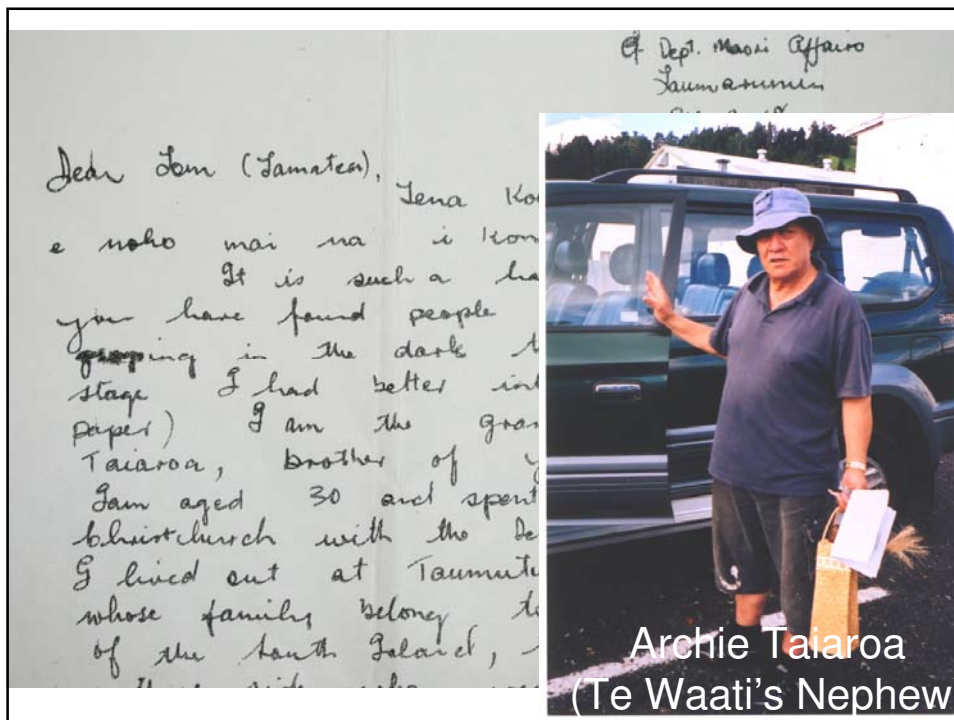 Dept. Maori Affairs
Taumarunui
Dear Tom (Tamatea),
Tena Ko
e noho mai na i Kon
It is such a ha
you have found people
in the dark t
stage I had better int
paper) I am the gran
Taiaroa, brother of y
I am aged 30 and spent
Christchurch with the De
I lived out at Taumutu
whose family belong to
of the South Island,
Archie Taiaroa
(Te Waati's Nephew